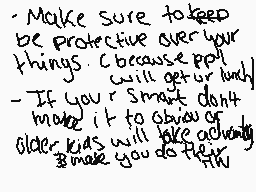 - Make sure to keep
be protective over your
things. ( because ppl
will get ur lunch)
- If you r smart don't
make it to obviou or
older kids will take advantage
& make you do their
HW